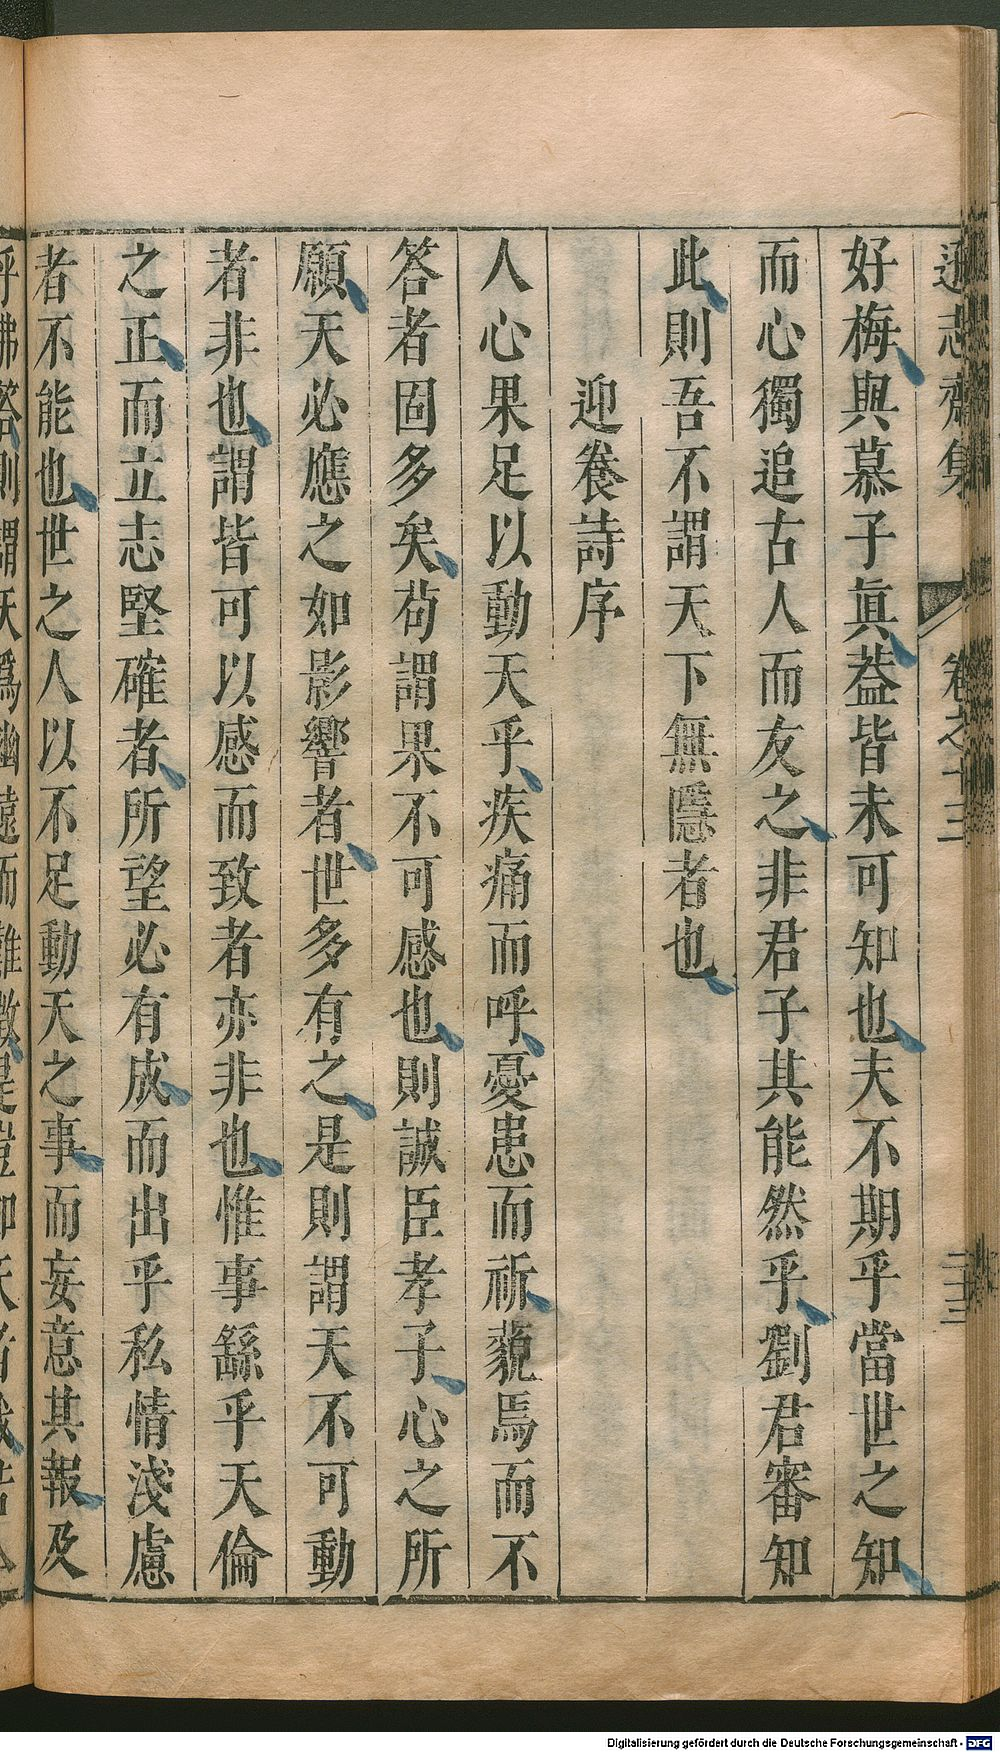 遜志齋集 卷之十三 二十三
好梅與慕子眞葢皆未可知也夫不期乎當世之知
而心獨追古人而友之非君子其能然乎劉君審知
此則吾不謂天下無隱者也
迎養詩序
人心果足以動天乎疾痛而呼憂患而祈藐焉而不
答者固多矣苟謂果不可感也則誠臣孝子心之所
願天必應之如影響者世多有之是則謂天不可動
者非也謂皆可以感而致者亦非也惟事繇乎天倫
之正而立志堅確者所望必有成而出乎私情淺慮
者不能也世之人以不足動天之事而妄意其報及
Digitalisierung gefördert durch die Deutsche Forschungsgemeinschaft - DFG